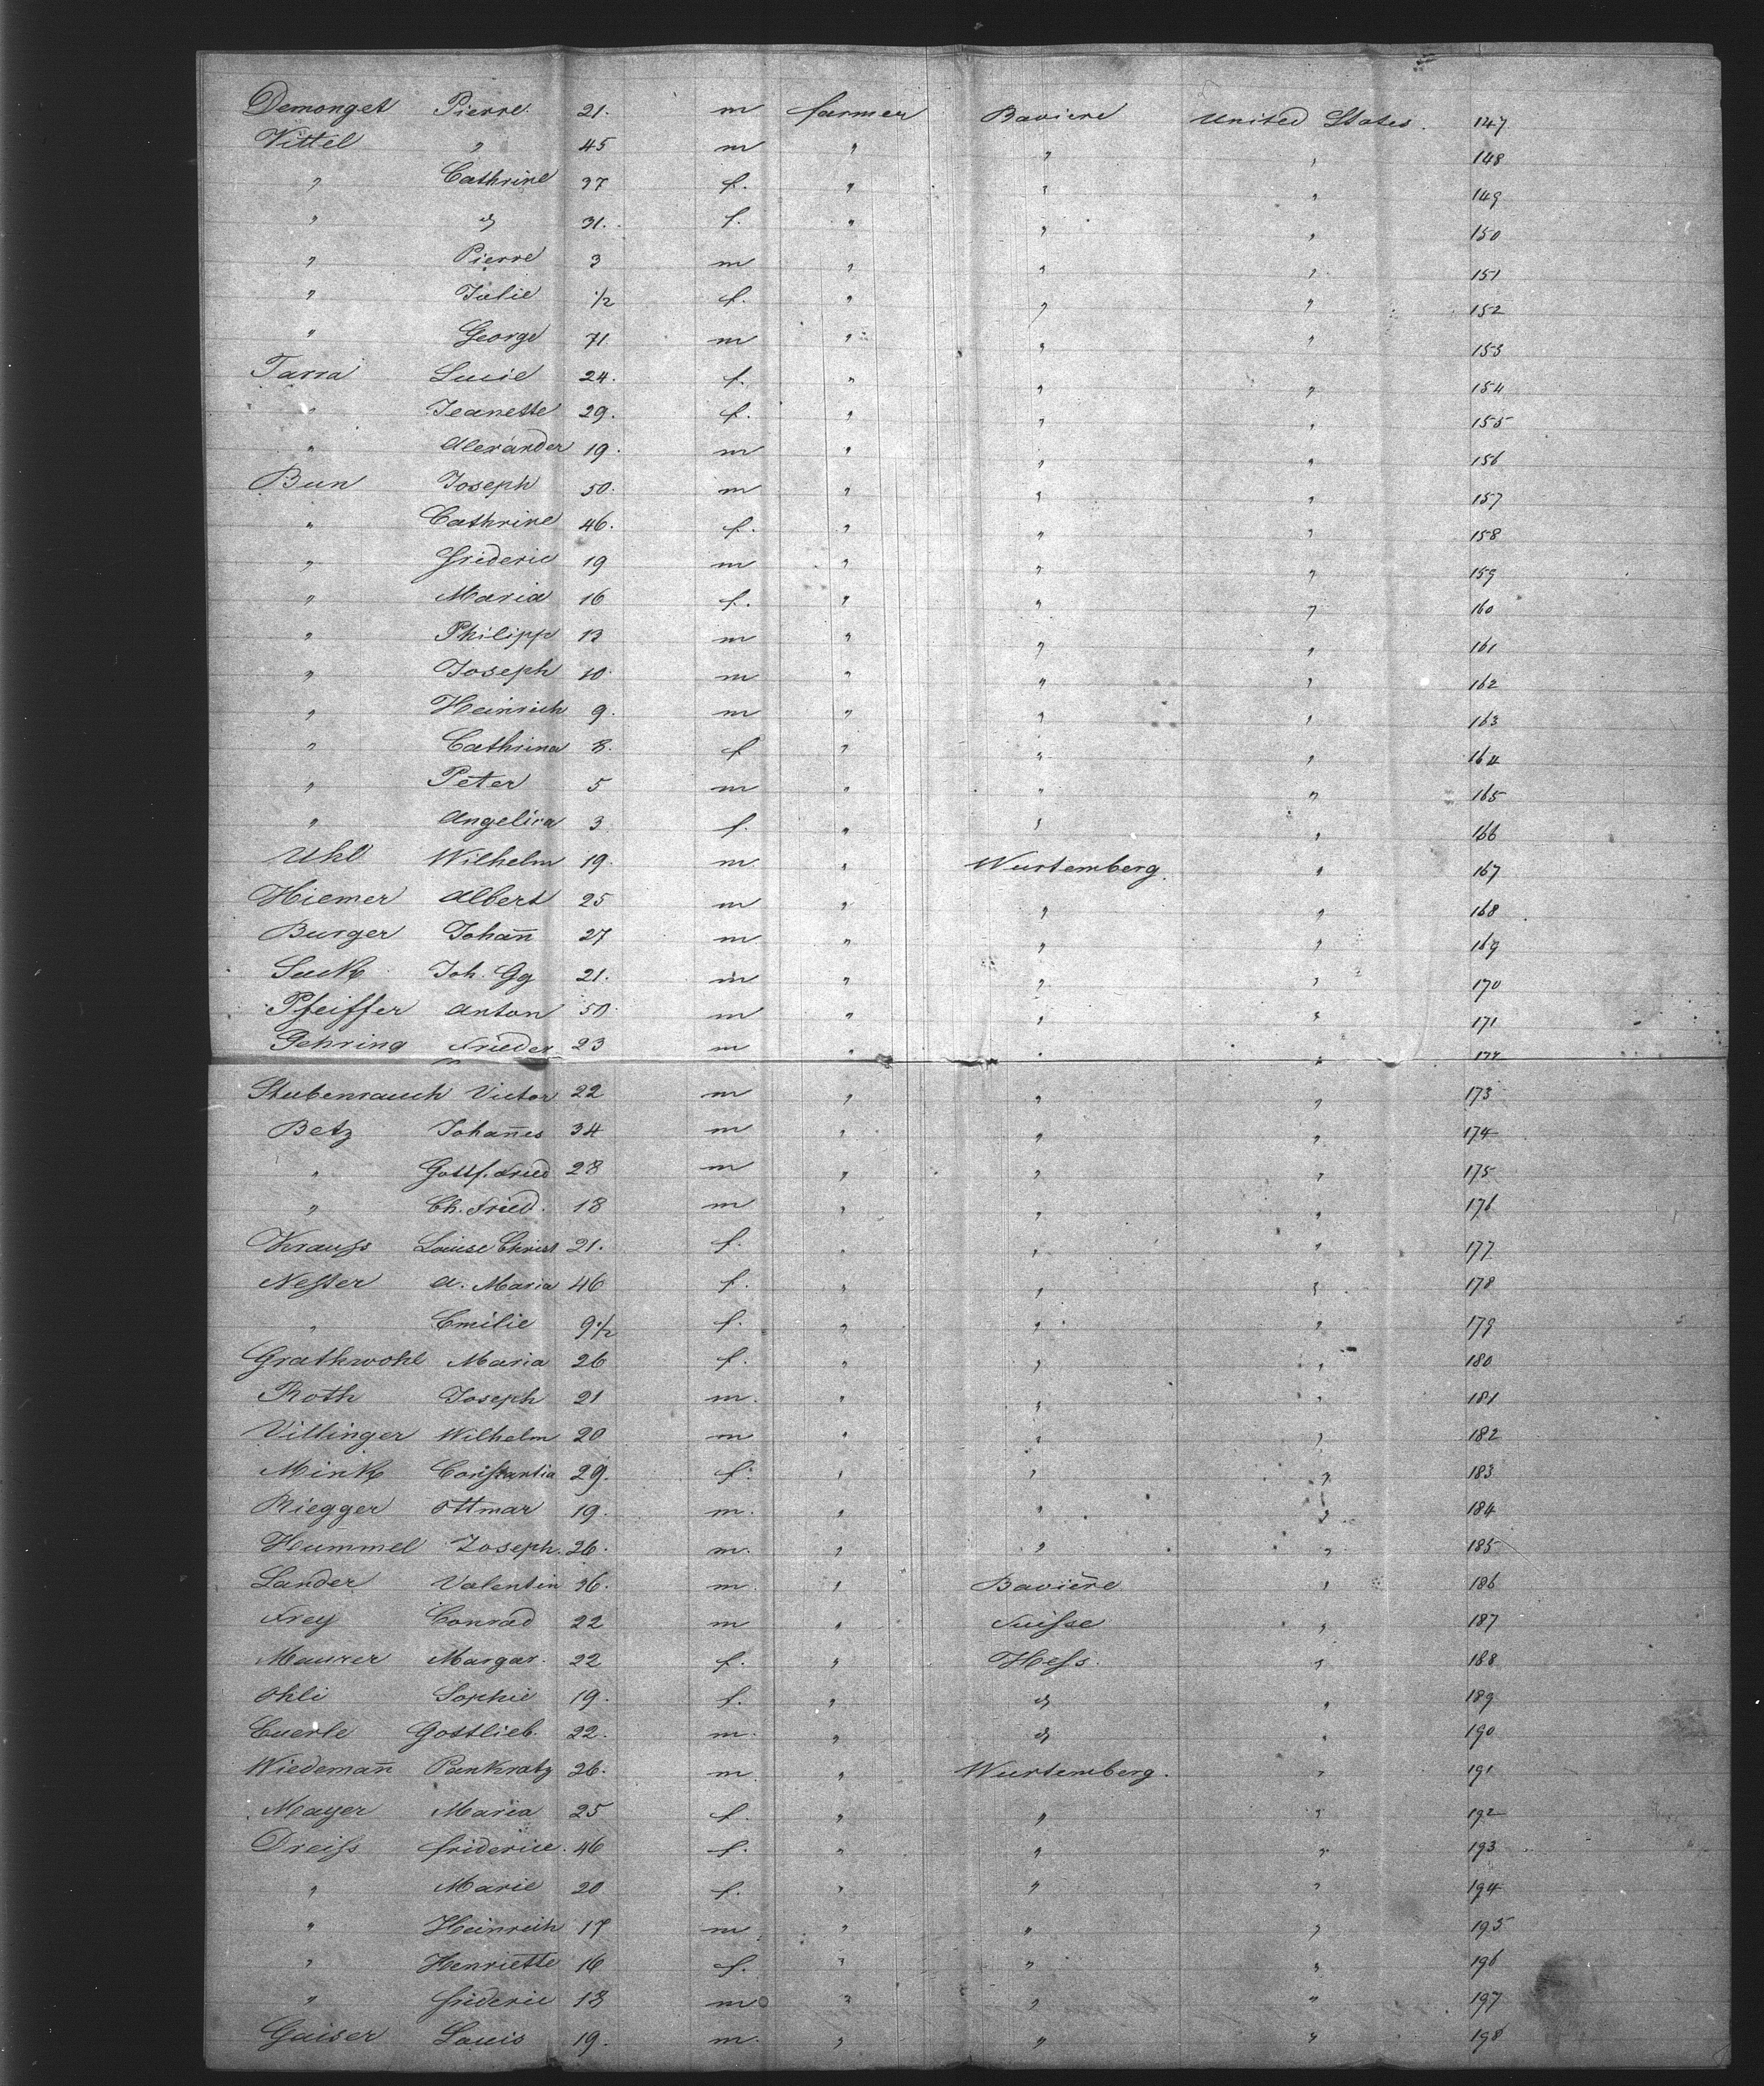 Demonget Pierre. 21. m farmer Baviere United States. 147
Vittel " 45 m " " " 148
" Cathrine 37 f. " " " 149
" d 31. f. " " " 150
" Pierre 3 m " " " 151
" Julie 1/2 f. " " " 152
" George 71 m " " " 153
Tarra Lucie 24. f. " " " 154
" Jeanette 29. f. " " " 155
" Alexander 19. m " " " 156
Bun Joseph 50. m " " " 157
" Cathrine 46. f. " " " 158
" Frideric 19 m " " " 159
" Maria 16 f. " " " 160
" Philipp 13 m " " " 161
" Joseph 10. m " " " 162
" Heinrich 9. m " " " 163
" Cathrina 8. f " " " 164
" Peter 5 m " " " 165
" Angelica 3 f. " " " 166
Uhl Wilhelm 19. m " Wurtemberg. " 167
Hiemer Albert 25 m " " " 168
Burger Johan̄ 27 m " " " 169
Suck Joh. Gg 21. m " " " 170
Pfeiffer Anton 50. m " " " 171
Gehring Frieder 23 m " " " 172
Stubenrauch Victor 22 m " " " 173
Betz Johan̄es 34 m " " " 174
" Gottf. Fried 28 m " " " 175
" Ch. Fried. 18 m " " " 176
Krauss Louise Christ 21. f. " " " 177
Nester A. Maria 46 f. " " " 178
" Emilie 9 1/2 f. " " " 179
Grathwohl Maria 26 f. " " " 180
Roth Joseph 21 m. " " " 181
Villinger Wilhelm 20 m " " " 182
Mink Constantia 29. f. " " " 183
Riegger Ottmar 19. m. " " " 184
Hummel Joseph. 26. m. " " " 185
Lander Valentin 36. m. " Bavière " 186
Frey Conrad 22 m " Suisse " 187
Maurer Margar. 22 f. " Hess. " 188
Ohli Sophie 19. f. " d " 189
Euerle Gottlieb. 22. m. " d " 190
Wiedeman̄ Pankratz 26. m. " Wurtemberg. " 191
Mayer Maria 25 f. " " " 192
Dreiss friderice. 46 f. " " " 193
" Marie 20 f. " " " 194
" Heinreih 17 m " " " 195
" Henriette 16 f. " " " 196
" frideric 13 m " " " 197
Gaiser Louis 19. m. " " " 198